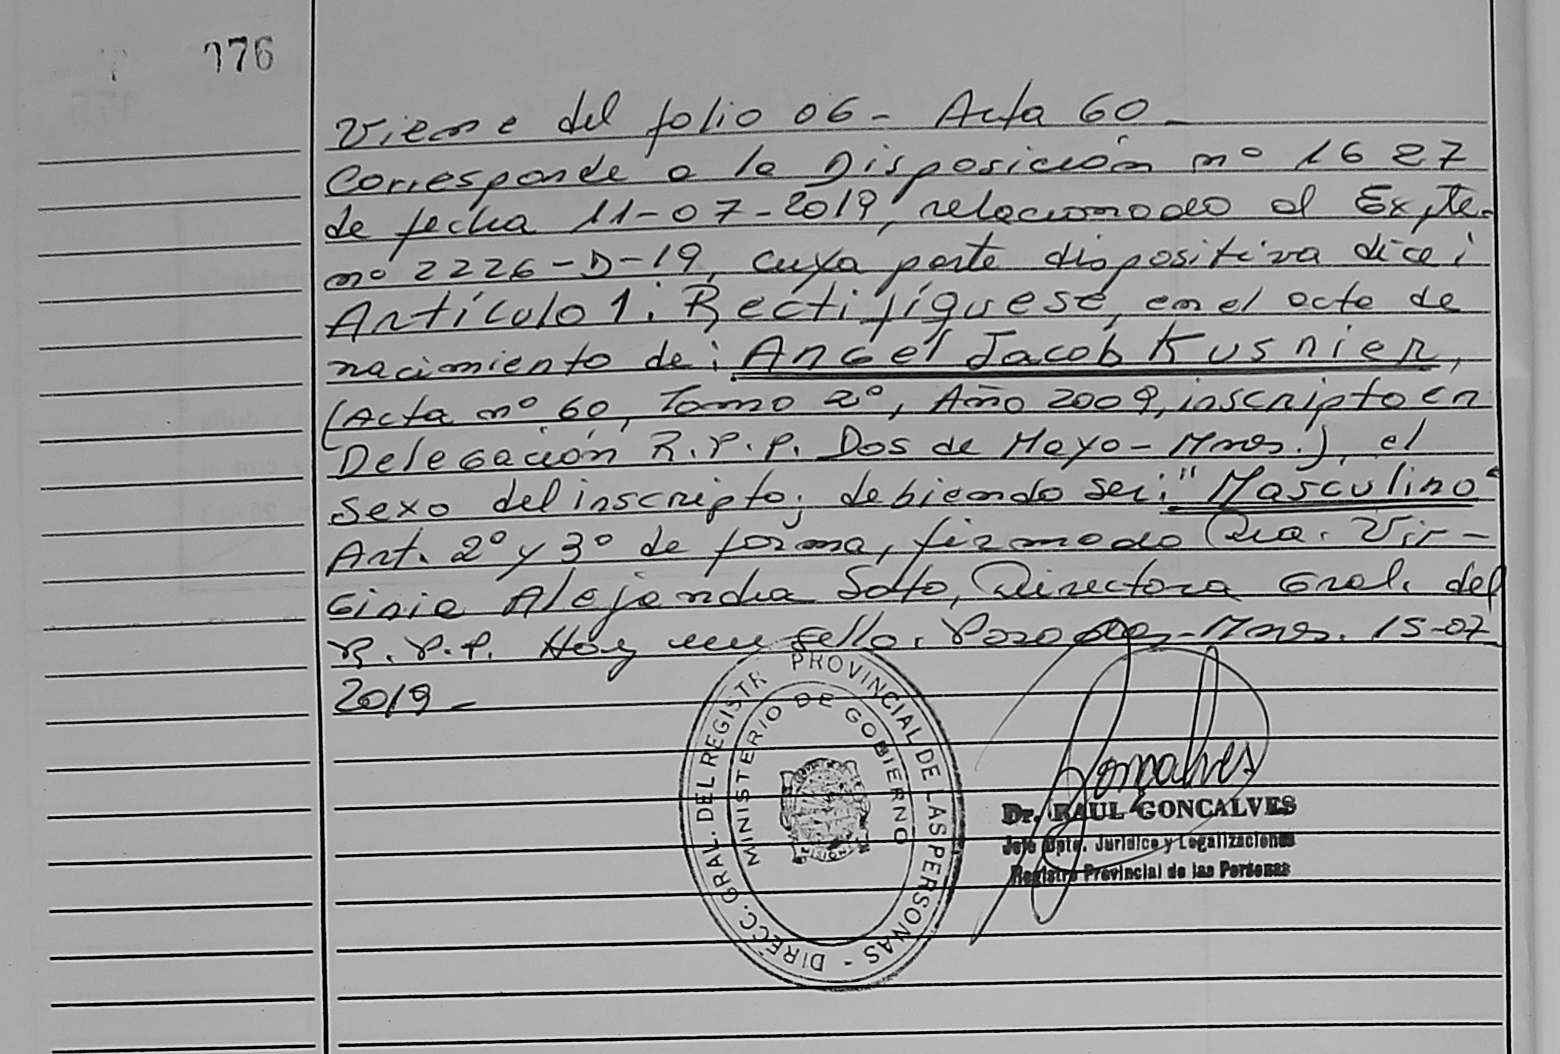 176
Viene del folio 06 - Acta 60 -
Corresponde a la Disposición nº 1627
de fecha 11-07-2019, relacionado al Expte.
nº 2226-D-19, cuya parte dispositiva dice:
Artículo 1: Rectifíquese, en el acta de
nacimiento de: Angel Jacob Kusnier,
(Acta nº 60, Tomo 2º, Año 2009, inscripto en
Delegación R.P.P. Dos de Mayo - Mnes.), el
sexo del inscripto; debiendo ser: "Masculino"
Art. 2º y 3º de forma, firmado Dra. Vir-
ginia Alejandra Soto, Directora Gral. del
R.P.P. Hay un sello. Posadas - Mnes. 15-07
2019 -
DIRECC. GRAL. DEL REGISTR PROVINCIAL DE LAS PERSONAS -
MINISTERIO DE GOBIERNO
Gonçalves
Dr. RAUL GONCALVES
Jefe Dpto. Jurídico y Legalizaciones
Registro Provincial de las Personas